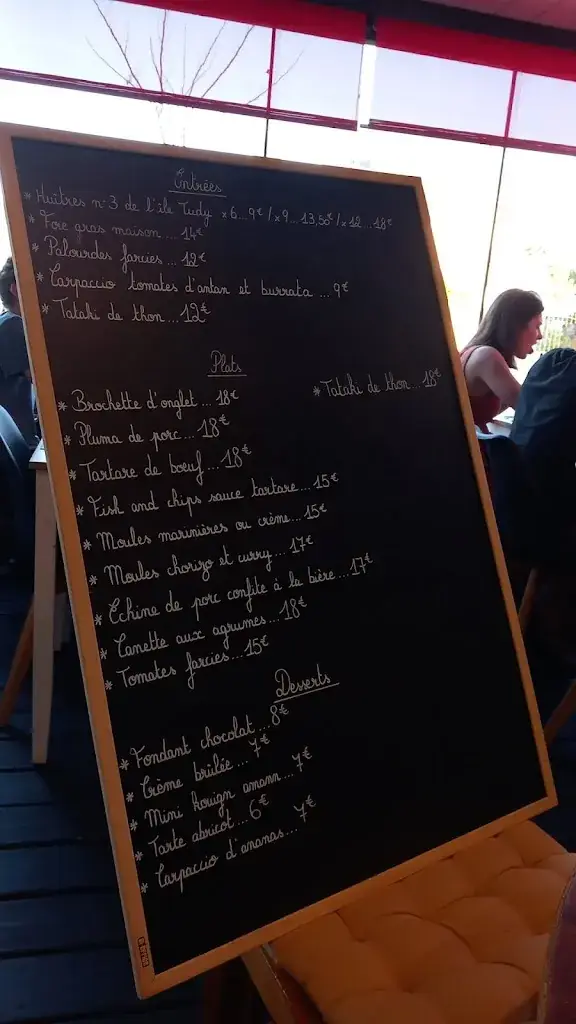 Entrées
* Huîtres n°3 de l'île Tudy x6...9€ / x9...13,50€ / x12...18€
* Foie gras maison...14€
* Palourdes farcies...12€
* Carpaccio tomates d'antan et burrata...9€
* Tataki de thon...12€
Plats
* Brochette d'onglet...18€
* Tataki de thon...18€
* Pluma de porc...18€
* Tartare de bœuf...18€
* Fish and chips sauce tartare...15€
* Moules marinières ou crème...15€
* Moules chorizo et curry...17€
* Echine de porc confite à la bière...17€
* Canette aux agrumes...18€
* Tomates farcies...15€
Desserts
* Fondant chocolat...8€
* Crème brûlée...7€
* Mini kouign amann...7€
* Tarte abricot...6€
* Carpaccio d'ananas...7€